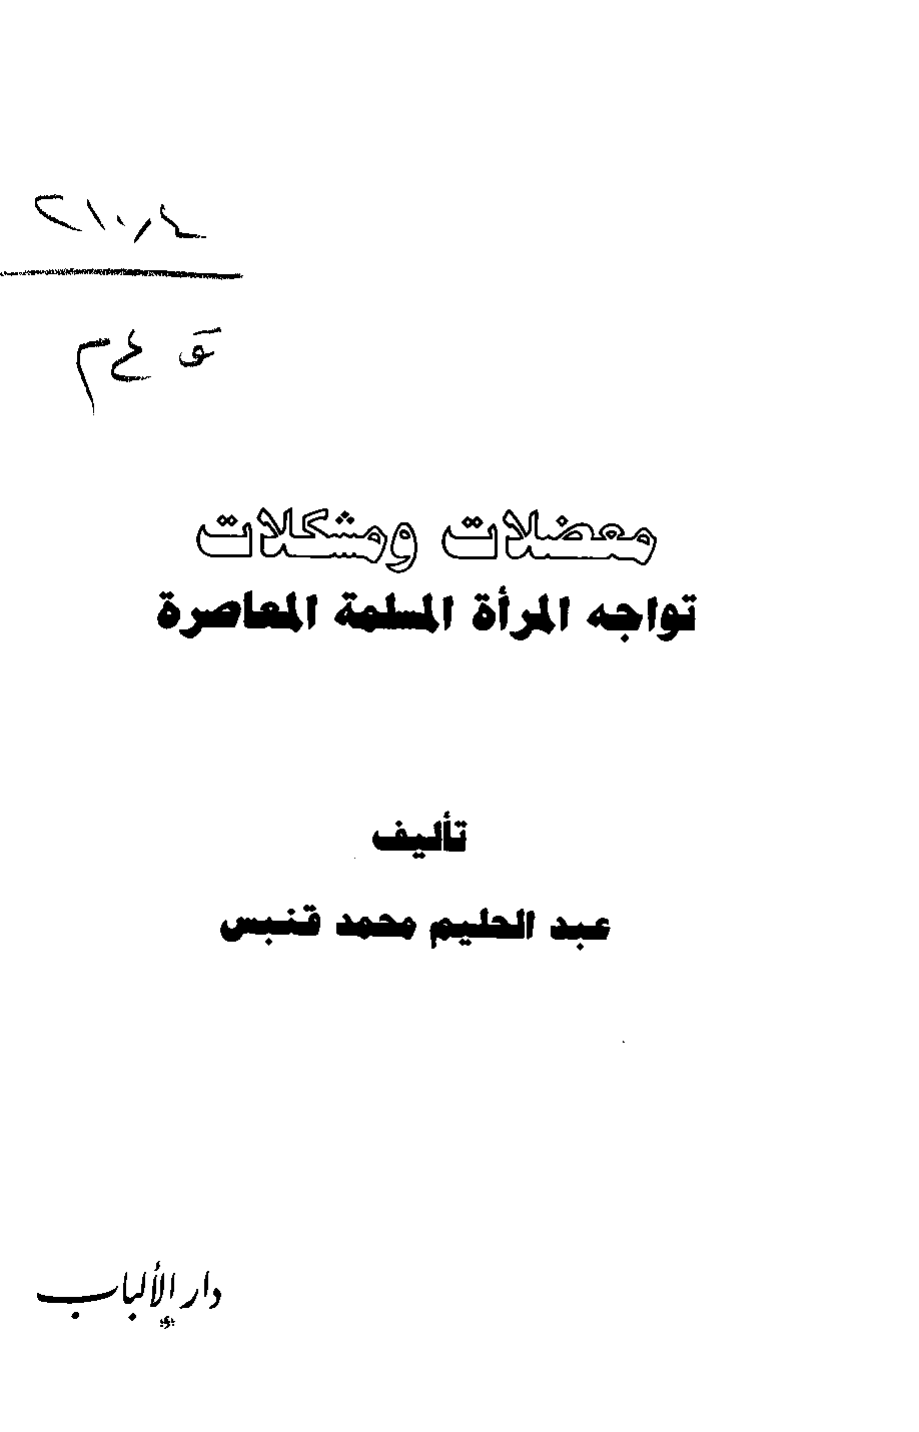 ٢١٠,٤
ق ع م
معضلات ومشكلات
تواجه المرأة المسلمة المعاصرة
تأليف
عبد الحليم محمد قنبس
دار الألباب